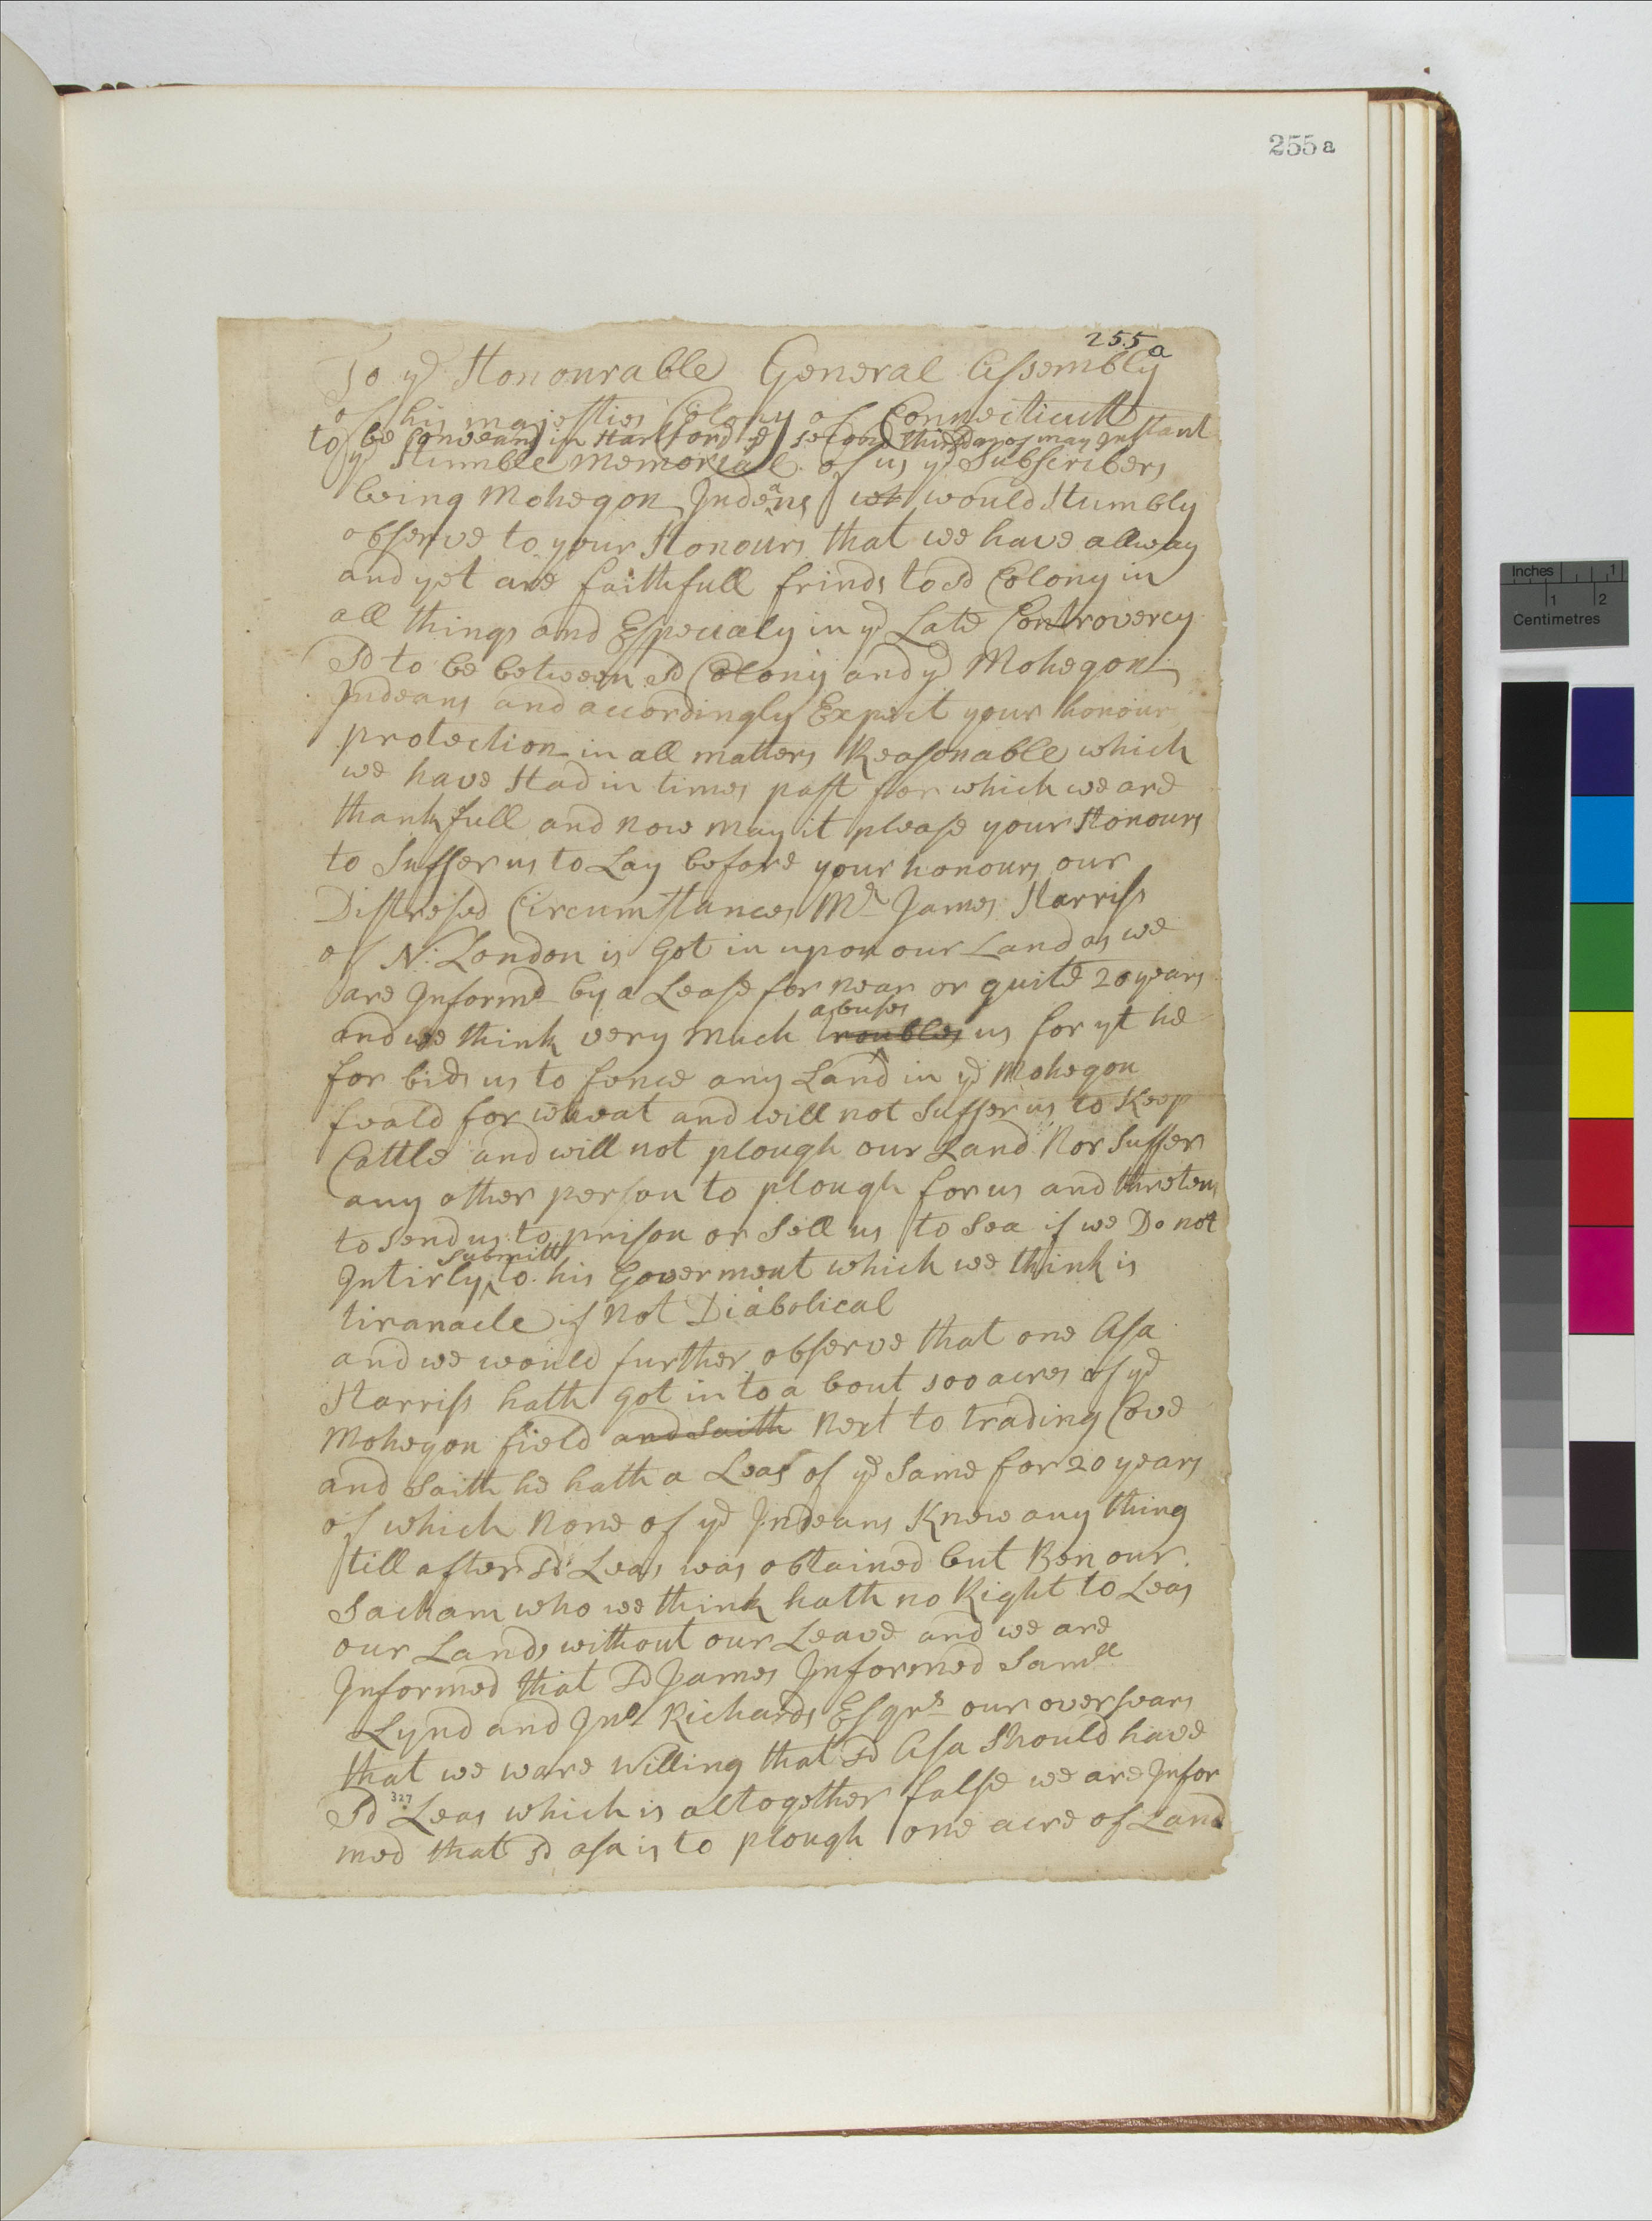 255 a
255
a
To ye Honourable General Assembly
of his majesties Colony of Connecticutt
to be Conveand in Hartford ye second thirsday of may Instant
ye Humble memorial of us ye Subscribers
being Mohegon Indeans who would Humbly
observe to your Honours that we have allway
and yet are faithfull frinds to sd Colony in
all things and Especialy in ye Late Controvercy
Sd to be between sd Colony and ye Mohegon
Indeans and accordingly Expect your honours
protection in all matters Reasonable which
we have Had in times past for which we are
thankfull and now may it please your Honours
to Suffer us to Lay before your honours our
Distresed Circumstances Mr James Harriss
of N: London is Got in upon our Land as we
are Informd by a Lease for near or quite 20 years
abuses
and we think very much troubles us for yt he
for bids us to fence any Land in ye Mohegon
feald for wheat and will not Suffer us to Keep
Cattle and will not plough our Land Nor Suffer
any other person to plough for us and threten
to send us to prison or Sell us to Sea if we Do not
Submitt
Intirly to his Goverment which we think is
tiranacle if Not Diabolical
and we would further observe that one Asa
Harriss hath got in to a bout 100 acres of ye
Mohegon field and saith Next to trading Cove
and Saith he hath a Leas of ye Same for 20 years
of which None of ye Indeans Knew any thing
till after sd Leas was obtained but Ben our
Sacham who we think hath no Right to Leas
our Lands without our Leave and we are
Informed that Sd James Informed Samll
Lynd and Jno Richards Esqrs our oversears
that we ware willing that sd Asa Should have
327
Sd Leas which is altogether false we are Infor
med that sd asa is to plough one acre of Land